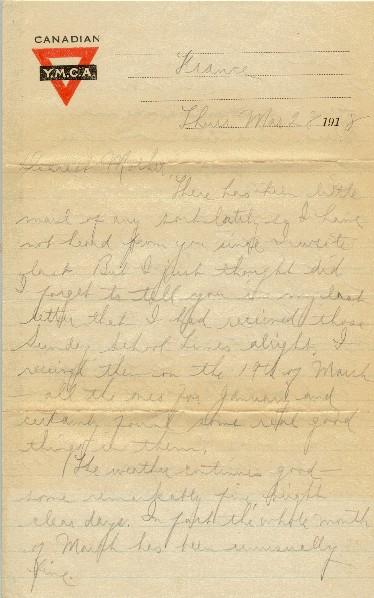 CANADIAN
Y.M.C.A.
France
Thurs Mar 28 1918
Dearest Mother,
There has been little
mail of any sort lately so I have
not heard from you since I wrote
last. But I just thought did
I forget to tell you in my last
letter that I had received those
Sunday School Times alright. I
received them on the 19th of March
- all the ones for January and
certainly found some real good
things in them.
The weather continues good -
some remarkably fine bright
clear days. In fact the whole month
of March has been unusually
fine.